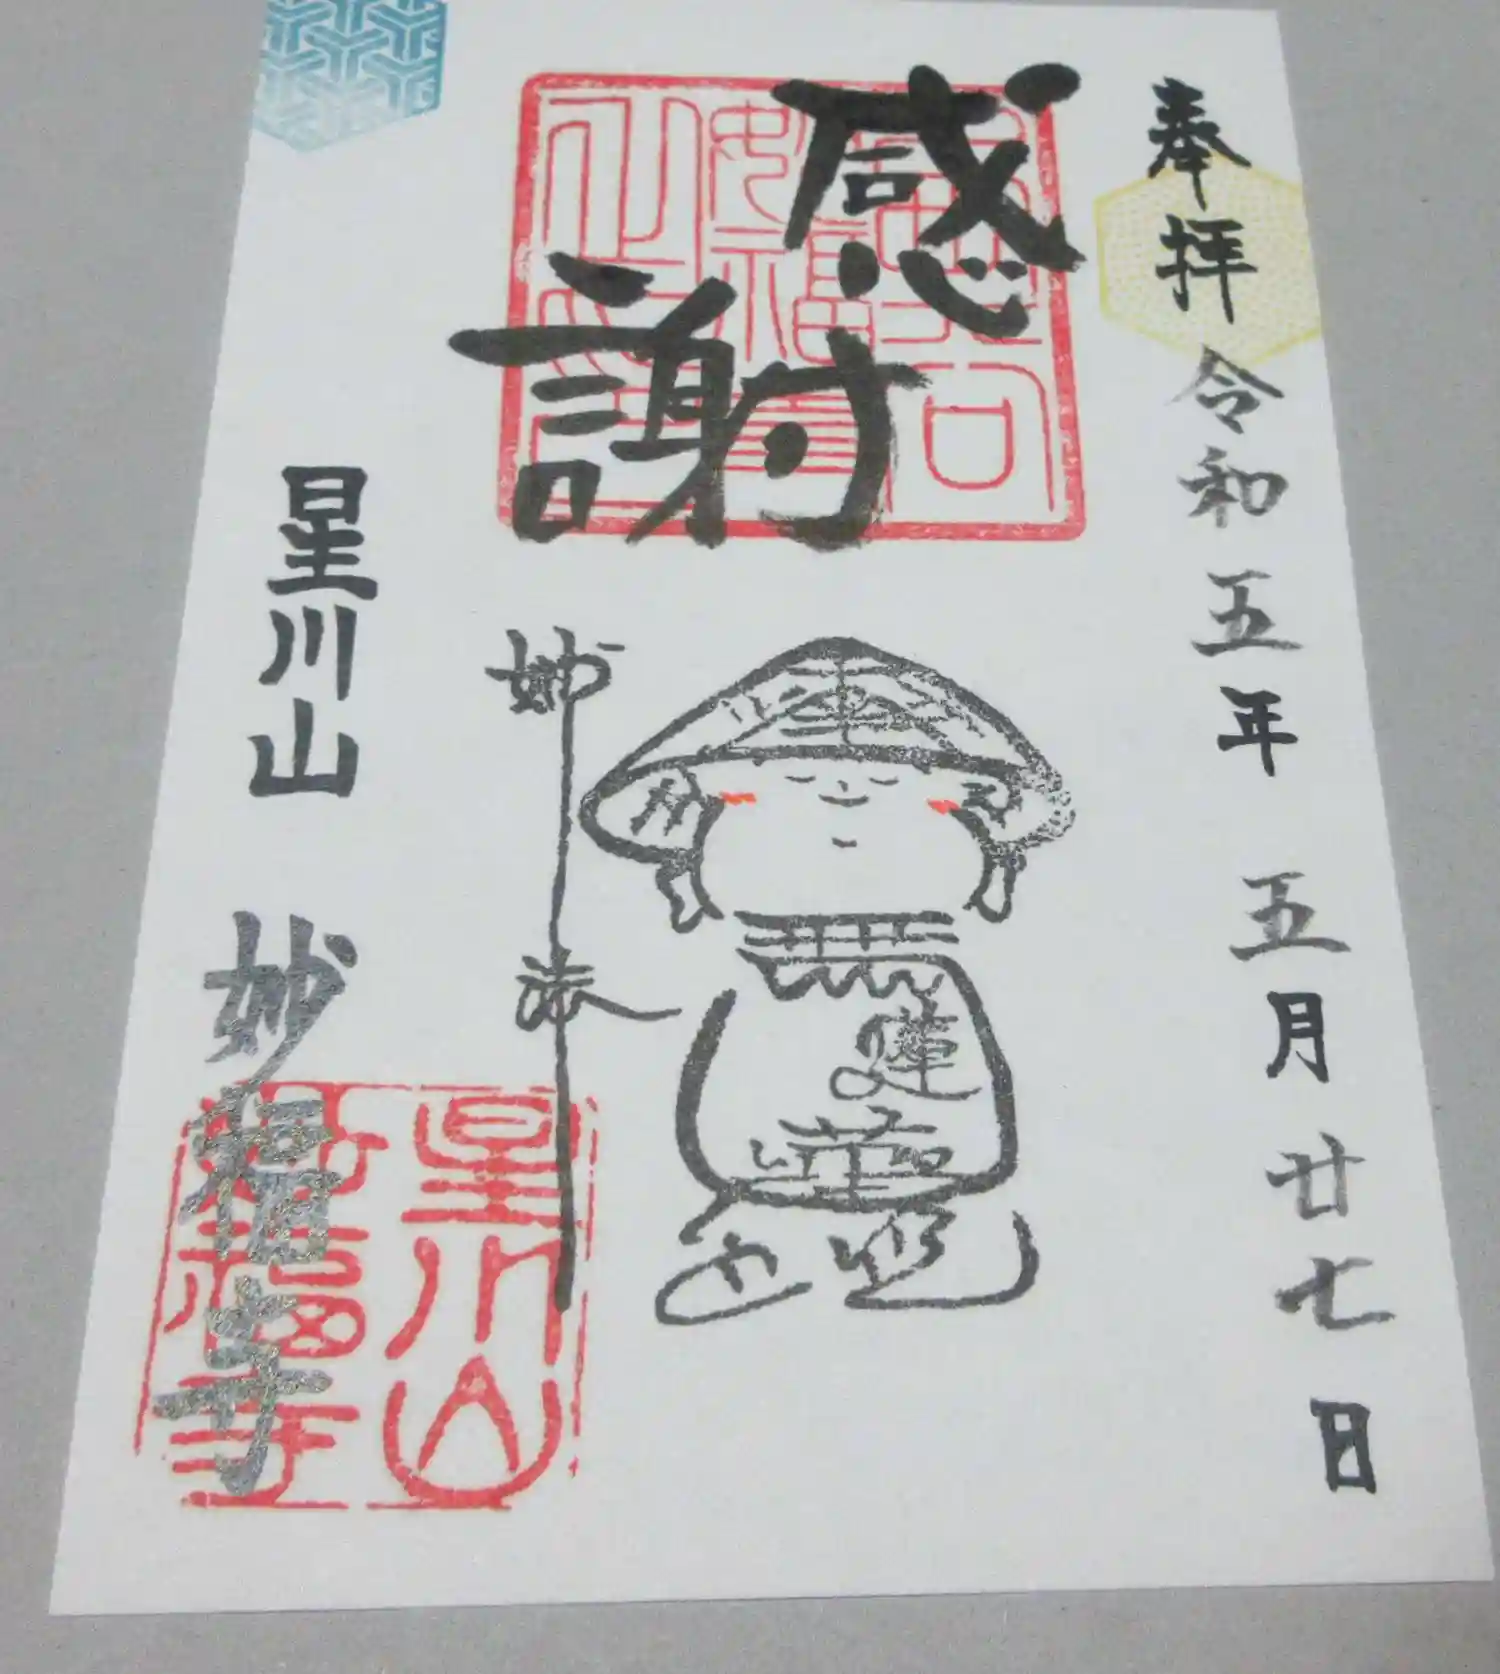 奉拝 令和五年 五月廿七日
感謝
妙法
蓮華
星川山 妙福寺
星川山
妙福寺